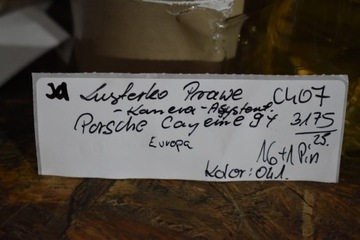 Lusterko Prawe C407
- Kamera - Asystent.
Porsche Cayenne 9Y 3175
23.
Europa
16+1 Pin
Kolor: 041.